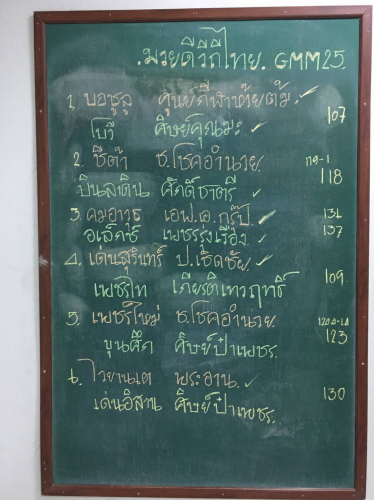 .มวยดีวิถีไทย. GMM25.
1. บอซูลู ศูนย์กีฬาห้วยต้ม ✓
107
โบวี ศิษย์คุณมะ ✓
2. ซีต้า ช.โชคอำนวย.
118
บินลาดิน ศักดิ์ชาตรี ✓
3. คมอาวุธ เอฟ.เอ.กรุ๊ป. ✓
131
อเล็กซ์ เพชรรุ่งเรือง. ✓
137
4. เด่นสุรินทร์ ป.เชิดชัย. ✓
109
เพชรไท เกียรติเทวฤทธิ์
5. เพชรใหม่ ช.โชคอำนวย.
123
ขุนศึก ศิษย์ป๋าเพชร.
6. ไวยานเต พระอาน. ✓
130
เด่นอิสาน ศิษย์ป๋าเพชร.